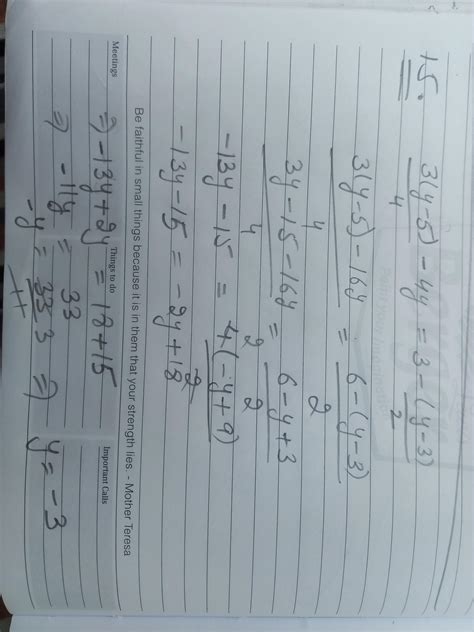 15. 3(y-5)/4 - 4y = 3 - (y-3)/2
3(y-5) - 16y / 4 = 6 - (y-3) / 2
3y - 15 - 16y / 4 = 6 - y + 3 / 2
-13y - 15 = 4(-y+9) / 2
-13y - 15 = -2y + 18
Be faithful in small things because it is in them that your strength lies. - Mother Teresa
Meetings Things to do Important Calls
⇒ -13y + 2y = 18 + 15
⇒ -11y = 33
-y = 33/11 3 ⇒ y = -3